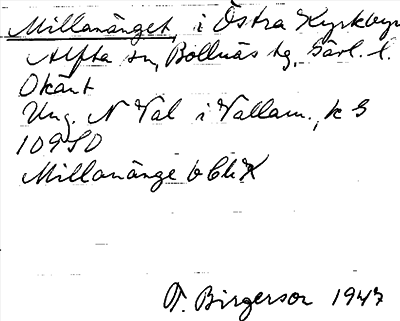 Millanänget, i Östra Kyrkbyn
Alfta sn, Bollnäs tg, Gävl. l.
Okänt
Ung. N Val i Vallam., k S
10950
Millanänge
T. Birgerson 1947